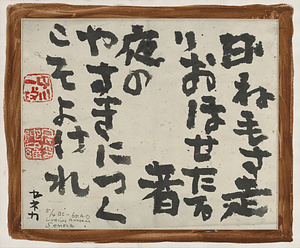 日ねもす走
りおほせたる
者
夜の
やすきにつく
こそよけれ
セネカ
Lucius Annaeus
Seneca